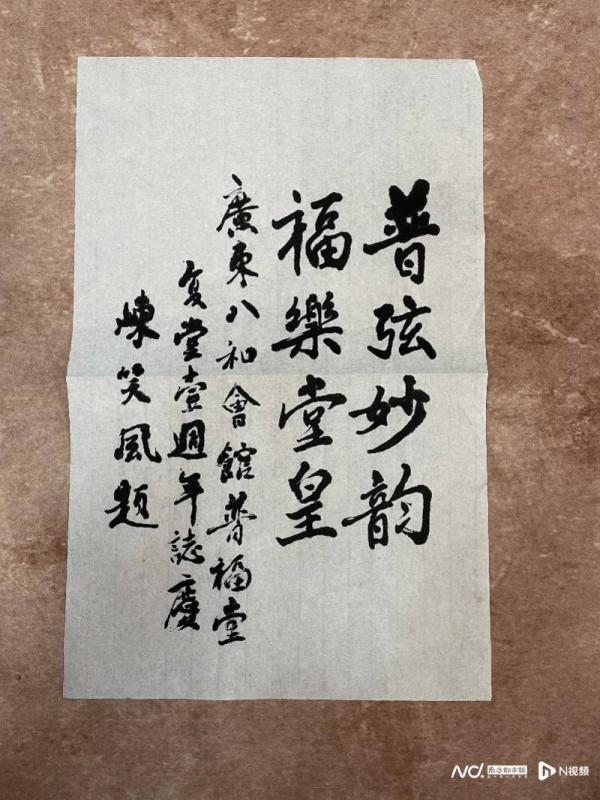 普弦妙韵
福樂堂皇
廣東八和會館普福堂
复堂壹週年誌慶
陳笑風題
南方都市報
N视频